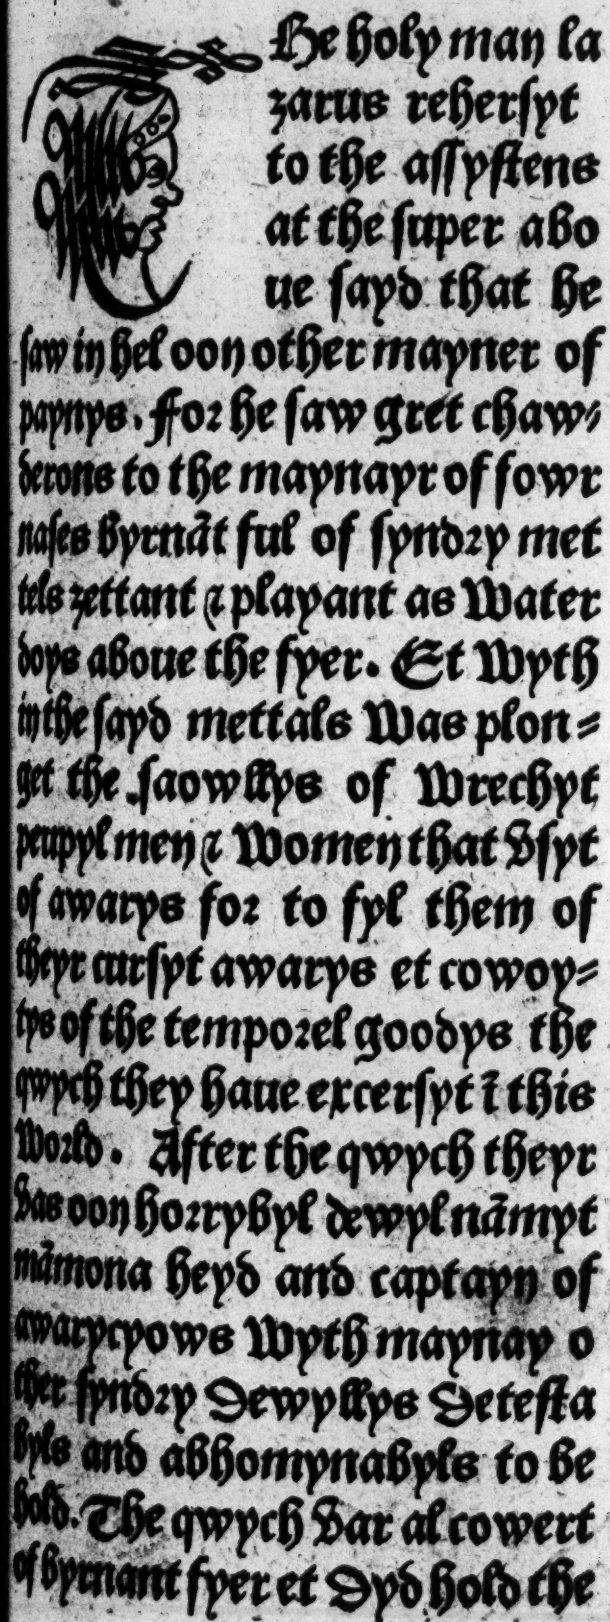 THe holy man la
zarus reherſyt
to the aſſyſtens
at the ſuper abo
ue ſayd that he
ſaw in hel oon other mayner of
paynys. ffor he ſaw gret chaw⸗
derons to the maynayr of fowr
naſes byrnãt ful of ſyndry met
tels zettant ⁊ playant as Water
doys aboue the fyer. Et Wyth
in the ſayd mettals Was plon⸗
get the ſaowllys of Wrechyt
peupyl men ⁊ Women that Vſyt
of awarys for to fyl them of
theyr curſyt awarys et cowoy⸗
tys of the temporel goodys the
qwych they haue excerſyt ĩ this
World. After the qwych theyr
Vas oon horrybyl dewyl nãmyt
mãmona heyd and captayn of
awarycyows Wyth maynay o
ther ſyndry Dewyllys Deteſta
byls and abhomynabyls to be
hold. The qwych Var al cowert
of byrnant fyer et Dyd hold the